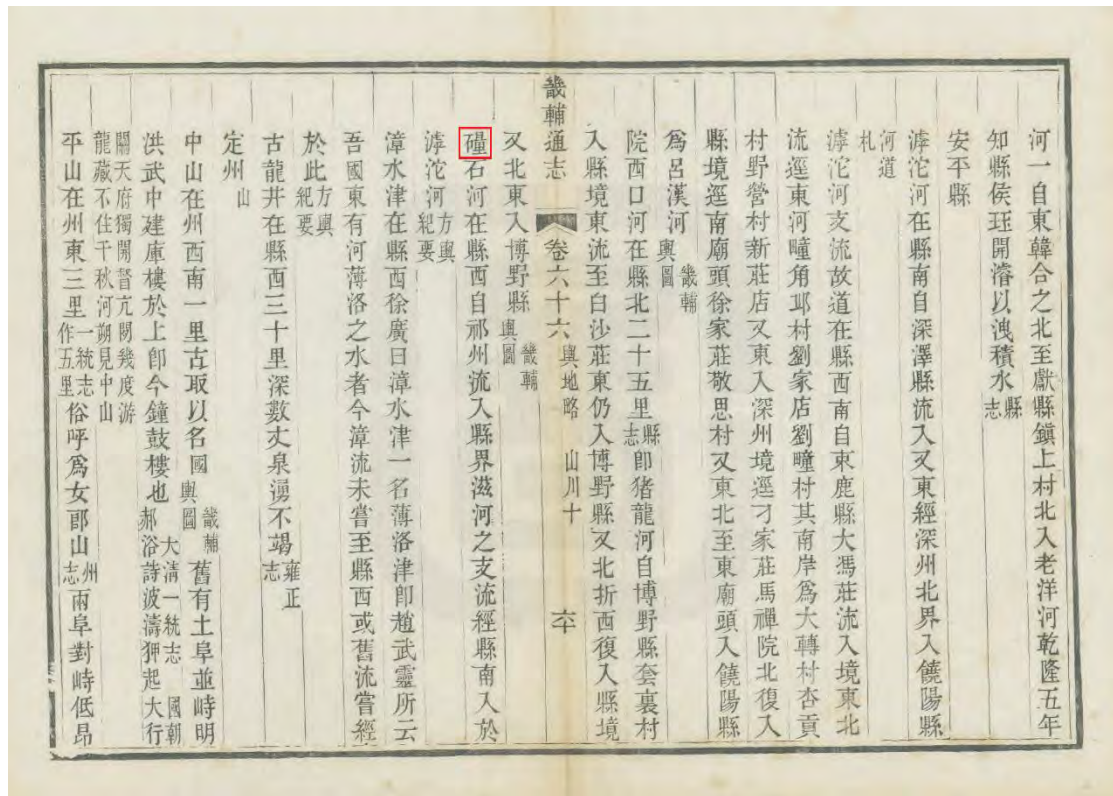 河一自東韓合之北至獻縣鎮上村北入老洋河乾隆五年
知縣侯珏開濬以洩積水縣志
安平縣
滹沱河在縣南自深澤縣流入又東經深州北界入饒陽縣
河道札
滹沱河支流故道在縣西南自束鹿縣大馮莊流入境東北
流逕東河疃角邱村劉家店劉疃村其南岸爲大轉村杏貢
村野營村新莊店又東入深州境逕刁家莊馬禪院北復入
縣境逕南廟頭徐家莊敬思村又東北至東廟頭入饒陽縣
爲呂漢河畿輔輿圖
院西口河在縣北二十五里縣志卽猪龍河自博野縣套裏村
入縣境東流至白沙莊東仍入博野縣又北折西復入縣境
畿輔通志 卷六十六 輿地略 山川十 六十
又北東入博野縣畿輔輿圖
石河在縣西自祁州流入縣界滋河之支流經縣南入於
滹沱河方輿紀要
漳水津在縣西徐廣曰漳水津一名薄洛津卽趙武靈所云
吾國東有河薄洛之水者今漳流未嘗至縣西或舊流嘗經
於此方輿紀要
古龍井在縣西三十里深數丈泉湧不竭雍正志
定州山
中山在州西南一里古取以名國畿輔輿圖舊有土阜並峙明
洪武中建庫樓於上卽今鐘鼓樓也大清一統志 國朝郝浴詩波濤狎起大行
關天府獨開督亢閟幾度游龍藏不住千秋河朔見中山
平山在州東三里一統志作五里俗呼爲女郎山州志兩阜對峙低昂